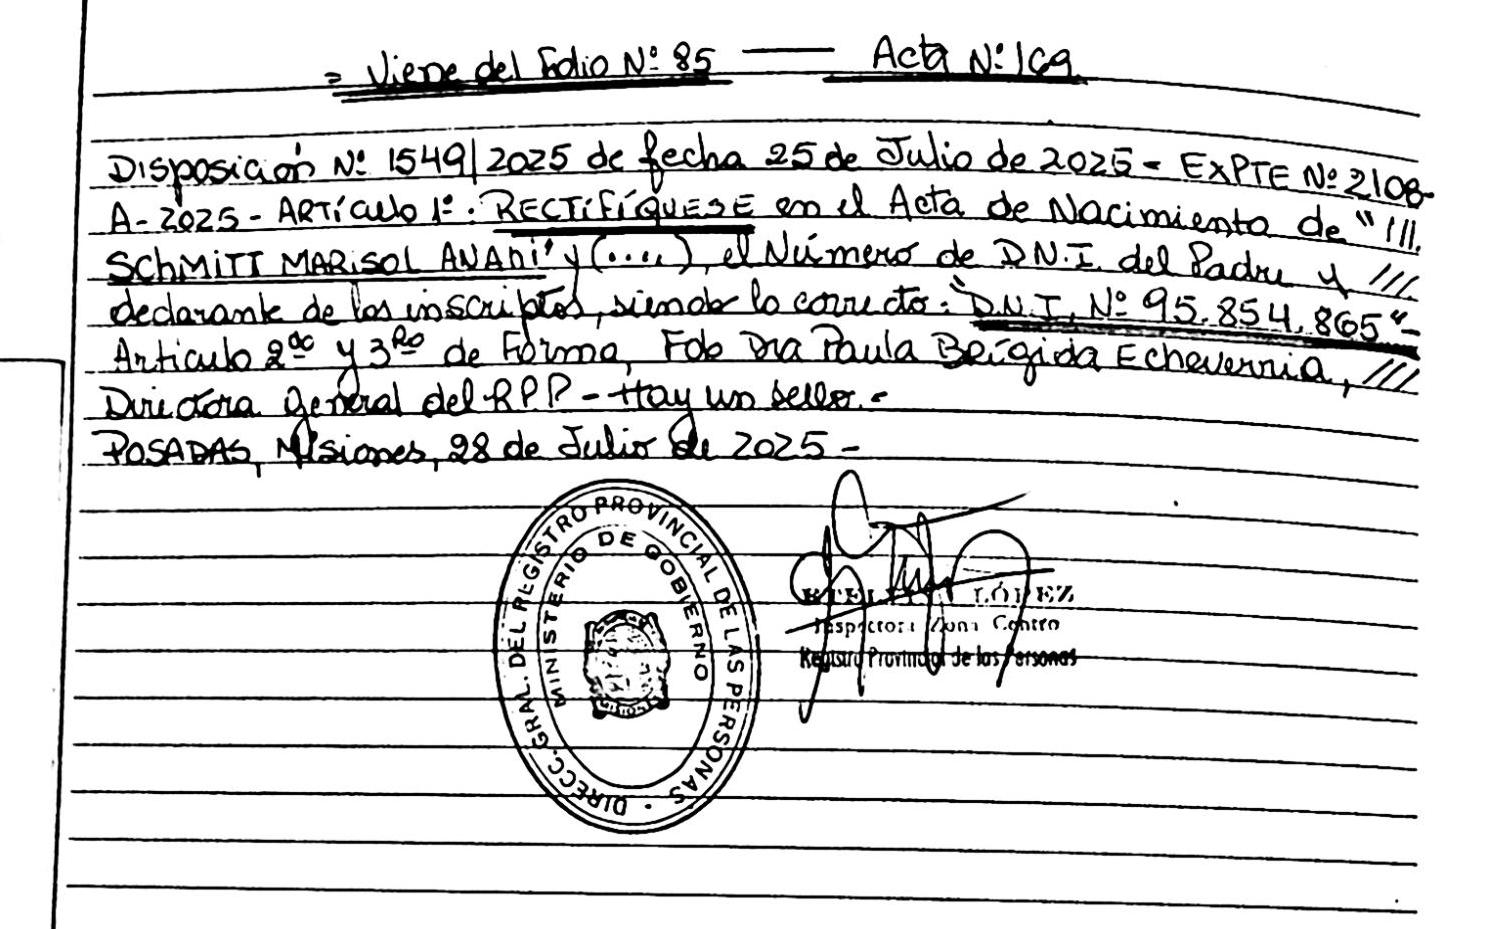 = Viene del Folio Nº 85 —— Acta Nº 169
Disposición Nº 1549/2025 de fecha 25 de Julio de 2025 - EXPTE Nº 2108-
A-2025 - ARTÍCULO 1º: RECTIFÍQUESE en el Acta de Nacimiento de "///
SCHMITT MARISOL ANAHI" y (....), el Número de D.N.I. del Padre y ///
declarante de los inscriptos, siendo lo correcto: "D.N.I. Nº 95.854.865"-
Articulo 2do y 3Ro de Forma, Fdo Dra Paula Brígida Echeverria, ///
Directora General del R.P.P - Hay un sello.-
POSADAS, Misiones, 28 de Julio de 2025 -
DIRECC. GRAL. DEL REGISTRO PROVINCIAL DE LAS PERSONAS
MINISTERIO DE GOBIERNO
LÓPEZ
Inspectora Zona Centro
Registro Provincial de las Personas